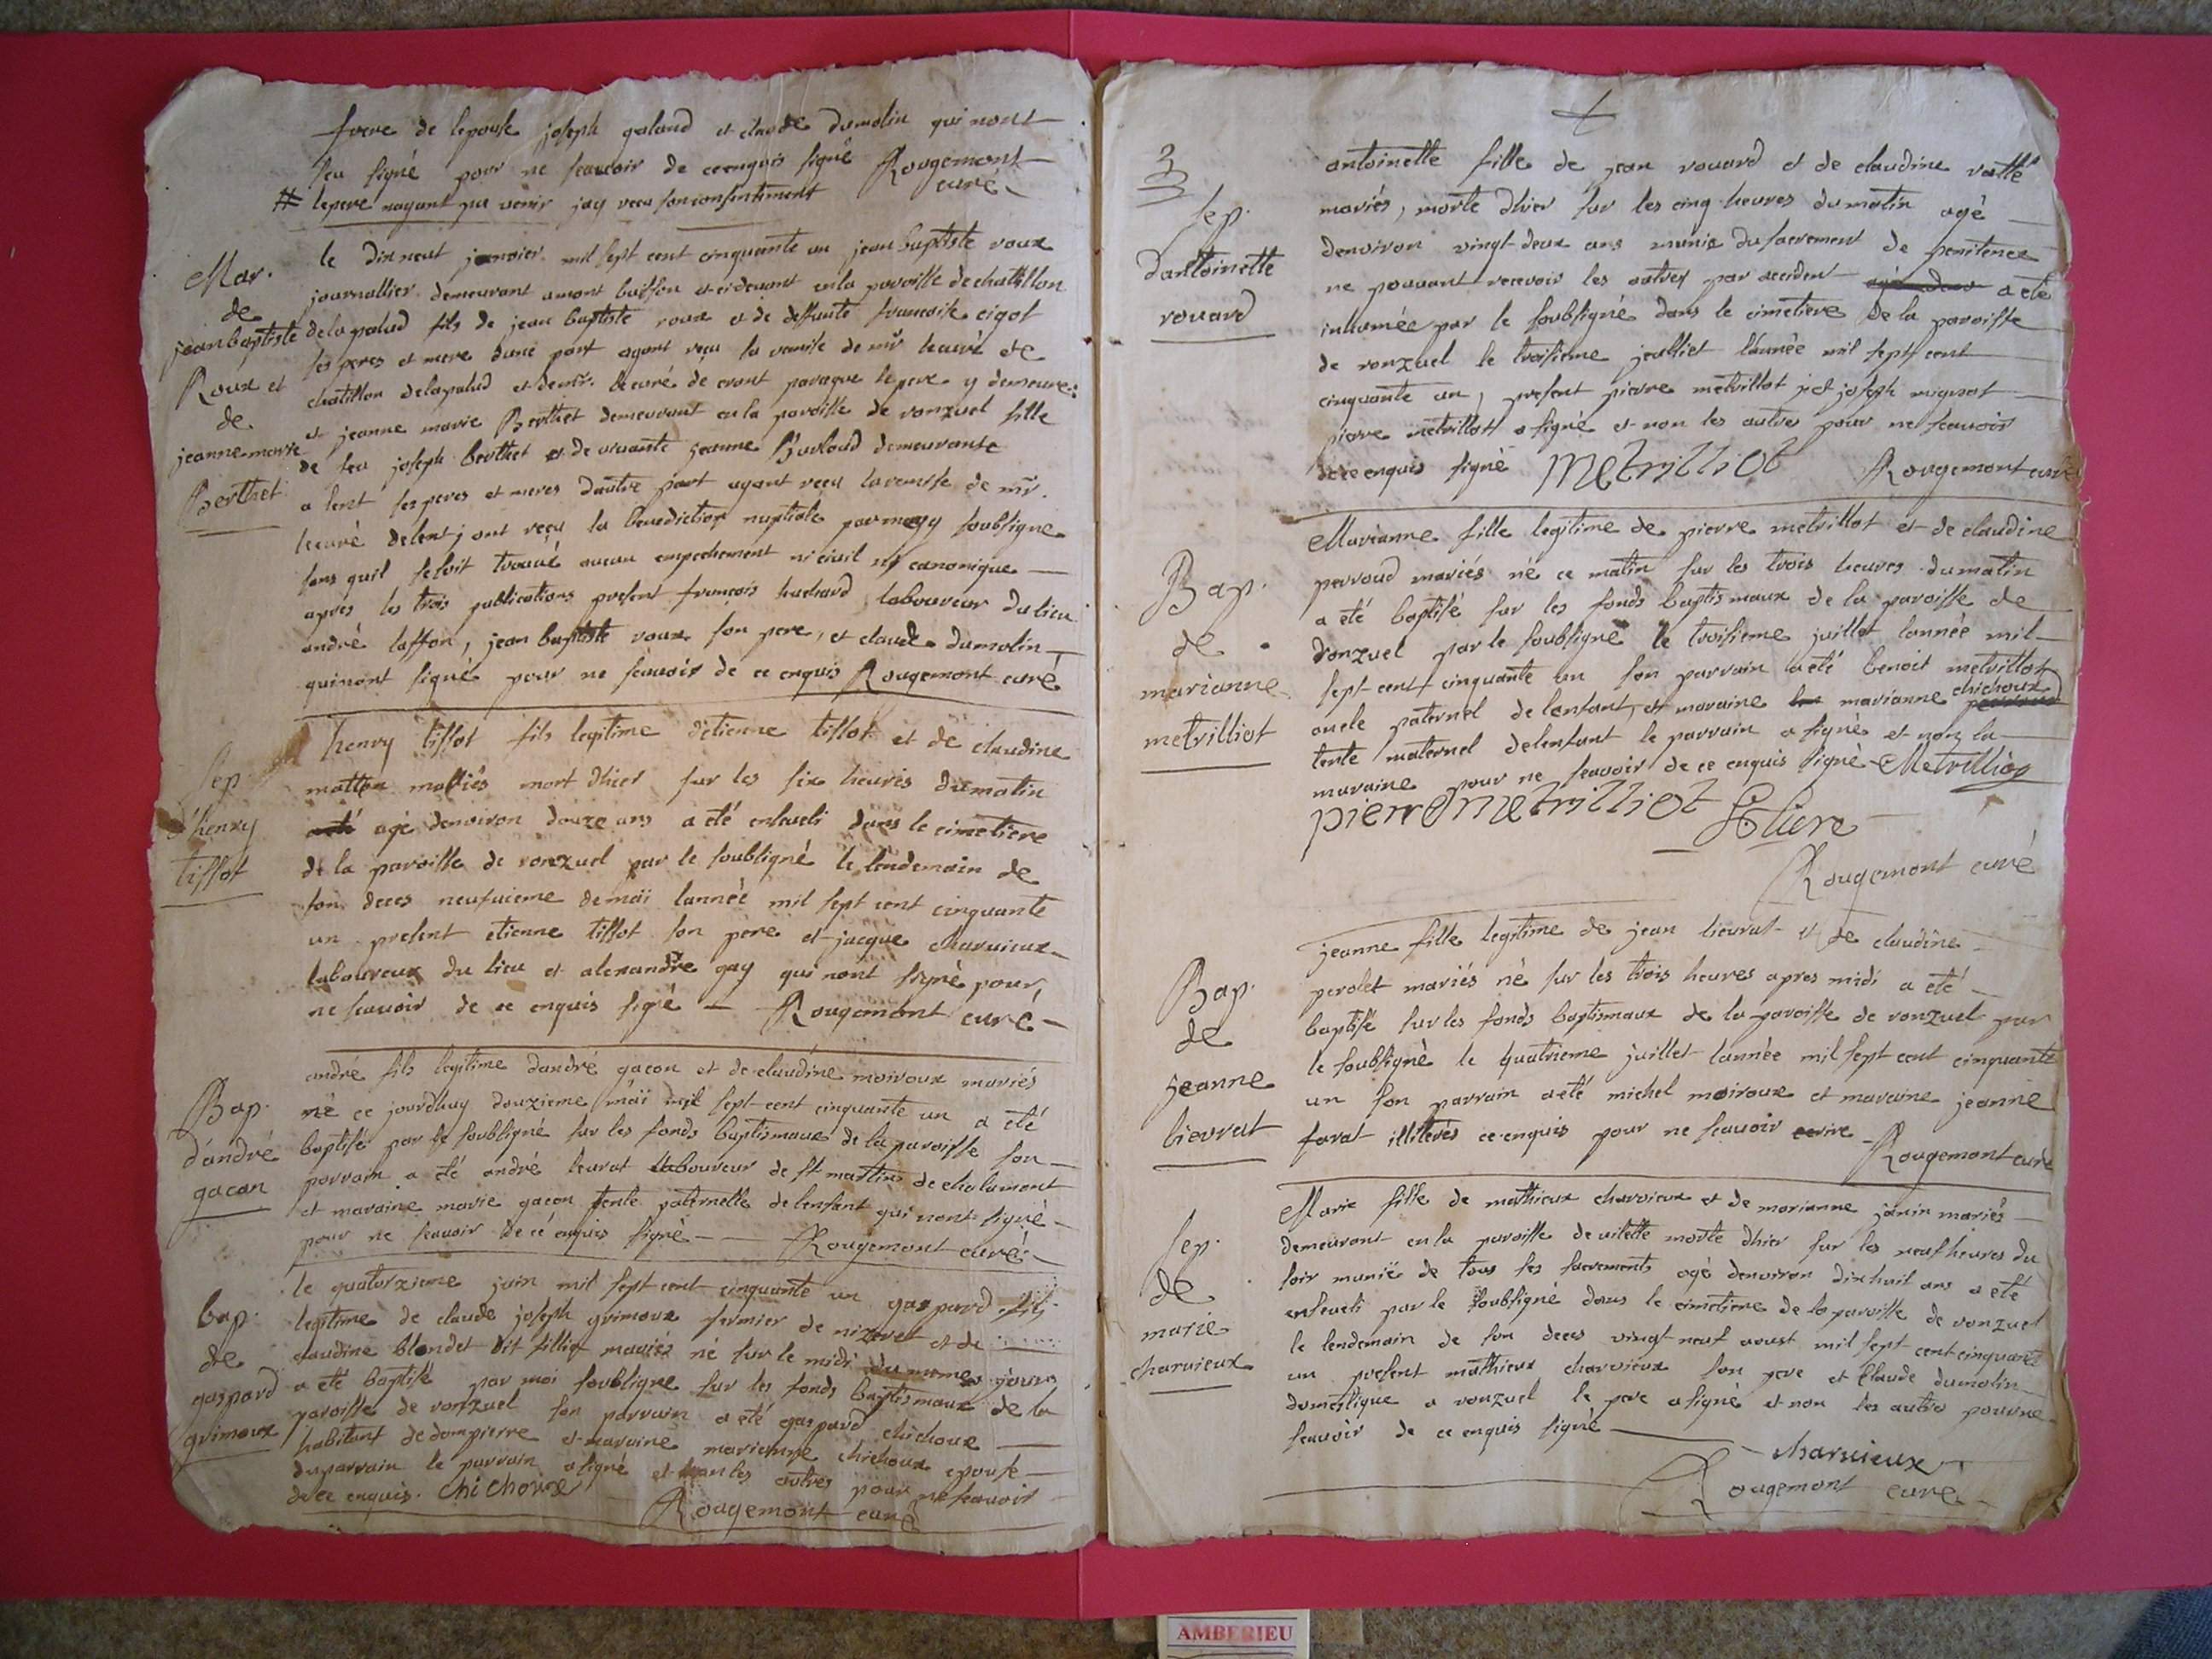 frere de lepouse joseph galand et claude dumolin qui nont
sceu signé pour ne scauoir de ce enquis signé Rougemont
# lepere nayant pu venir jay receu son consentiment curé
Mar.
de
jean baptiste
Roux et
de
jeanne marie
Berthet
le dix neuf janvier mil sept cent cinquante un jean baptiste roux
journallier demeurant a mont buisson et cideuant en la paroisse de chatillon
de la palud fils de jean baptiste roux et de deffunte francoise cigot
ses peres et mere dune part ayant recu la remise de mr le curé de
chatillon delapalud et de mr. le curé de crant paraque le pere y demeure
et jeanne marie Berthet demeurant en la paroisse de ronzuel fille
de feu joseph berthet et de viuante jeanne Burloud demeurante
a lent ses peres et meres dautre part ayant receu la remise de mr.
le curé de lent j ont reçu la benediction nuptiale par moy soubsigne
sans quil se soit trouué aucun empechement ni ciuil ny canonique
apres les trois publications present francois huchard laboureur du lieu
andré laffon, jean baptiste roux son pere, et claude dumolin
qui nont signé pour ne scauoir de ce enquis Rougemont curé
sep.
d'henry
tissot
henry tissot fils legitime d'etienne tissot et de claudine
matton mariés mort dhier sur les six heures du matin
agé denviron douze ans a été enseueli dans le cimetiere
de la paroisse de ronzuel par le soubsigné le lendemain de
son deces neufuieme de maï lannée mil sept cent cinquante
un present etienne tissot son pere et jacque charuieux
laboureux du lieu et alexandre gay qui nont signé pour
ne scauoir de ce enquis signé Rougemont curé
Bap.
d'andré
gacon
andré fils legitime dandré gacon et de claudine moiroux mariés
né ce jourdhuy douzieme maï mil sept cent cinquante un a été
baptisé par le soubsigné sur les fonds baptismaux de la paroisse son
parrain a été andré leurat laboureur de st martin de chalamont
et maraine marie gacon tente paternelle de lenfant qui nont signé
pour ne scauoir de ce enquis signé Rougemont curé
bap.
de
gaspard
grimoux
le quatorzieme juin mil sept cent cinquante un gaspard fils
legitime de claude joseph grimoux fermier de nizeret et de
claudine blondet dit fillion mariés né sur le midi du meme jour
a été baptisé par moi soubsigne sur les fonds baptismaux de la
paroisse de ronzuel son parrain a été gaspard chichoux
habitant de dompierre et maraine marianne chichoux epouse
du parrain le parrain a signé et non les autres pour ne scauoir
de ce enquis. chichoux Rougemont curé
3
sep.
dantoinette
rouard
antoinette fille de jean rouard et de claudine vatté
mariés, morte dhier sur les cinq heures du matin agé
denviron vingt deux ans munie du sacrement de penitence
ne pouuant recevoir les autres par accident a eté
inhumée par le soubsigné dans le cimetiere de la paroisse
de ronzuel le troisieme jeulliet lannée mil sept cent
cinquante un, present pierre metrillot et joseph mignot
pierre metrillot a signé et non les autres pour ne scauoir
de ce enquis signé Metrilliot Rougemont curé
Bap.
de
marianne
metrilliot
Marianne fille legitime de pierre metrillot et de claudine
perroud mariés né ce matin sur les trois heures du matin
a été baptisé sur les fonds baptismaux de la paroisse de
ronzuel par le soubsigné le troisieme juillet lannée mil
sept cent cinquante un son parrain a été benoit metrillot
oncle paternel de lenfant, et maraine marianne chichoux
tente maternel de lenfant le parrain a signé et non la
maraine pour ne scauoir de ce enquis signé Metrilliot
pierre Metrilliot
Rougemont curé
Bap.
de
jeanne
lievrat
jeanne fille legitime de jean lieurat et de claudine
perolet mariés né sur les trois heures apres midi a eté
baptisé sur les fonds baptismaux de la paroisse de ronzuel par
le soubsigné le quatrieme juillet lannée mil sept cent cinquante
un son parrain a été michel moiroux et maraine jeanne
farat illiterés ce enquis pour ne scauoir ecrire Rougemont curé
sep.
de
marie
charuieux
Marie fille de mathieux charvieux et de marianne janin mariés
demeurant en la paroisse de vilette morte dhier sur les neuf heures du
soir munie de tous ses sacrements agé denviron dix huit ans a été
enseueli par le soubsigné dans le cimetiere de la paroisse de ronzuel
le lendemain de son deces vingt neuf aoust mil sept cent cinquante
un present mathieux charvieux son pere et Claude dumolin
domestique a ronzuel le pere a signé et non les autres pour ne
scauoir de ce enquis signé
charuieux
Rougemont curé
AMBERIEU